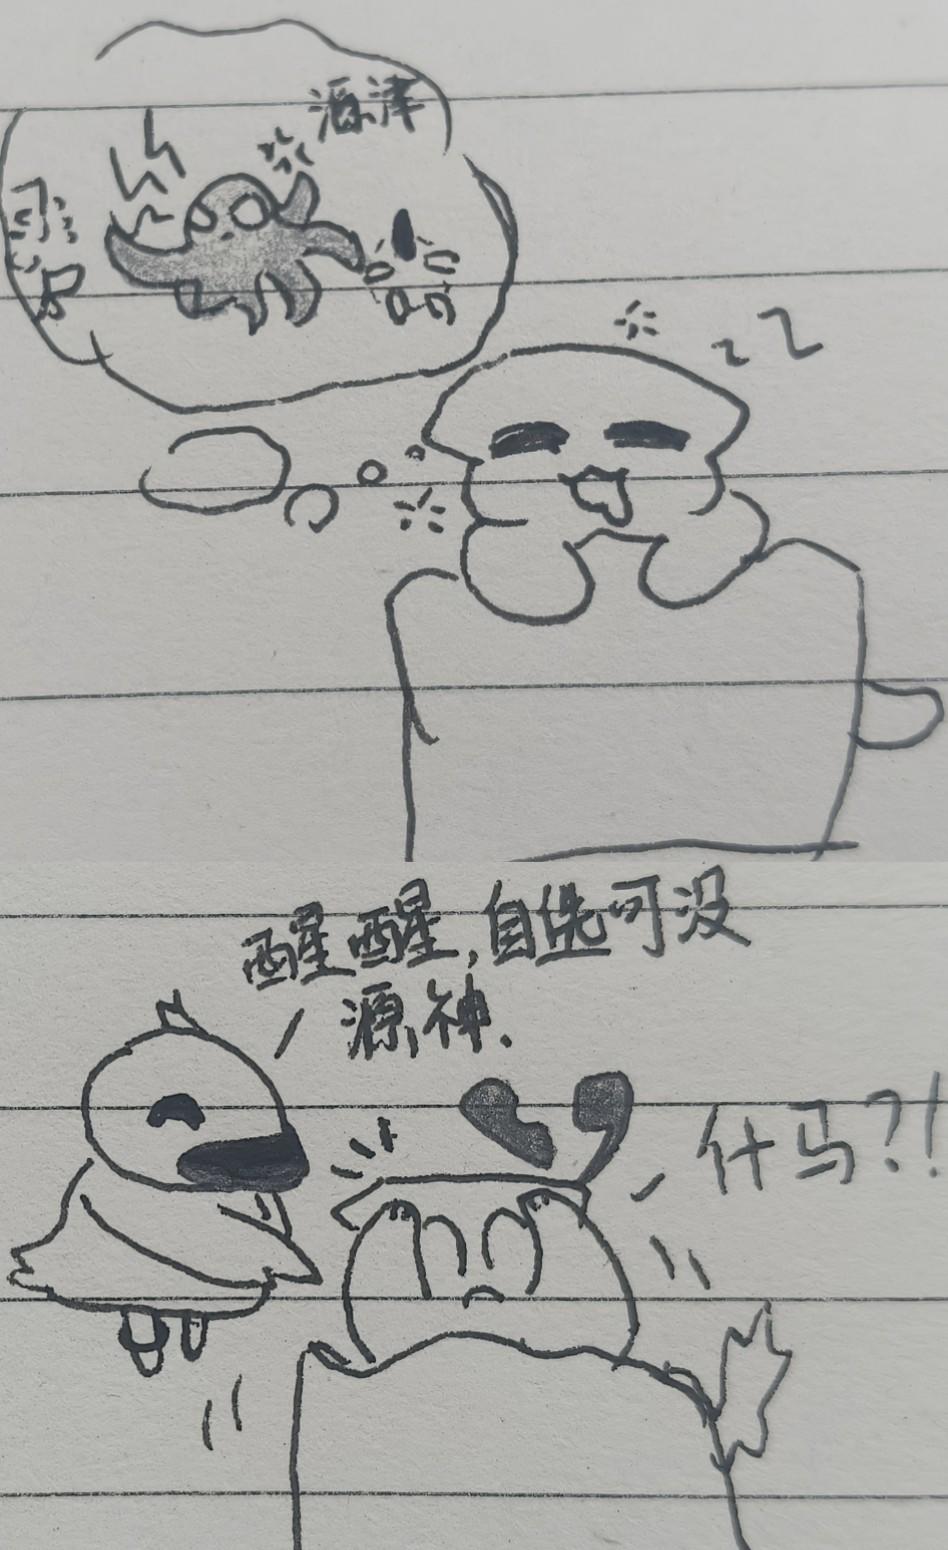 源津
zz
醒醒,自选可没
源神.
什马?!